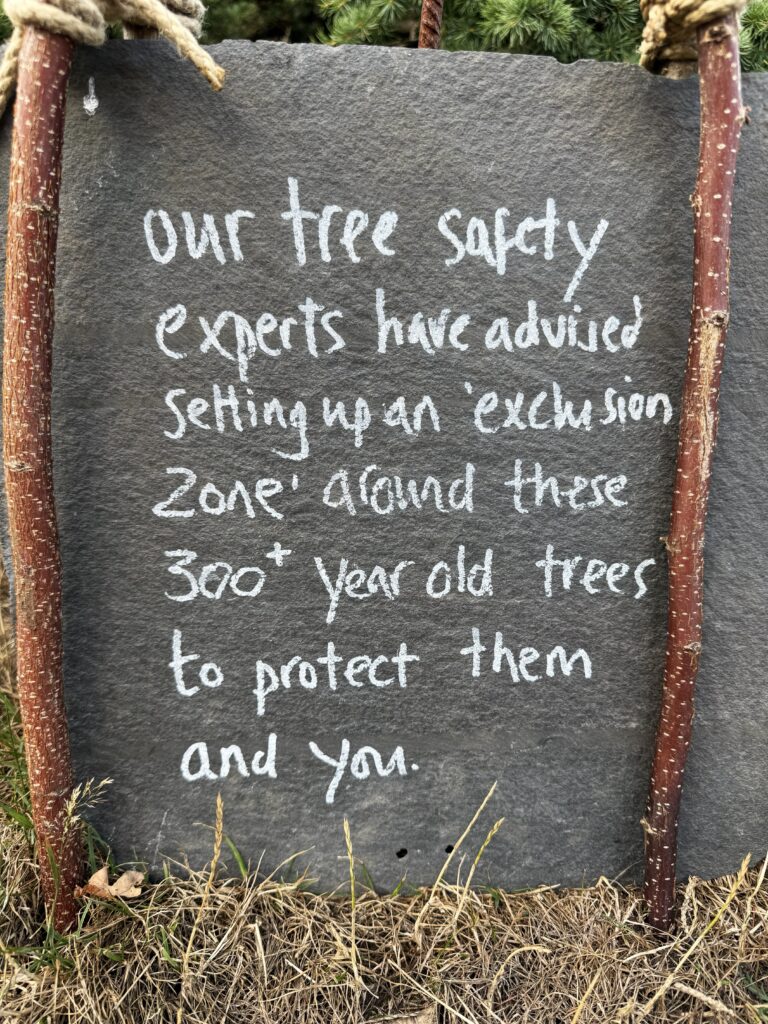 our tree safety
experts have advised
setting up an 'exclusion
zone' around these
300+ year old trees
to protect them
and you.